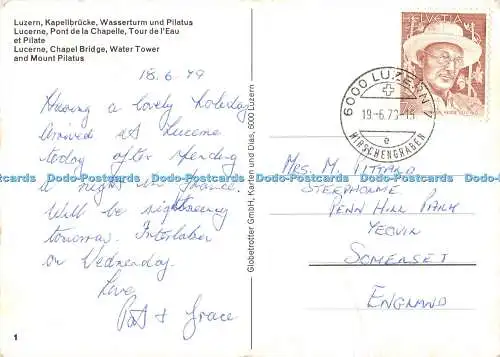 Luzern, Kapellbrücke, Wasserturm und Pilatus
Lucerne, Pont de la Chapelle, Tour de l'Eau
et Pilate
Lucerne, Chapel Bridge, Water Tower
and Mount Pilatus
18.6.79
Having a lovely holiday
Arrived at Lucerne
today after spending
a night in France.
Will be sightseeing
tomorrow. Interlaken
on Wednesday.
Love
Pat & Grace
1
Globetrotter GmbH, Karten und Dias, 6000 Luzern
HELVETIA
6000 LUZERN
19.-6.79-
e
HIRSCHENGRABEN
Mrs. M. Pittard
STEEPHOLME
PENN HILL PARK
YEOVIL
SOMERSET
ENGLAND
Data-Postcards Data-Postcards Data-Postcards Data-Postcards
www.data-postcards.com